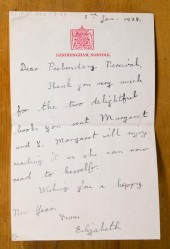 1st Jan. 1938.
SANDRINGHAM, NORFOLK.
Dear Prebendary Percival,
Thank you very much
for the two delightful
books you sent Margaret
and I. Margaret will enjoy
reading it as she can now
read to herself.
Wishing you a happy
New Year.
from
Elizabeth